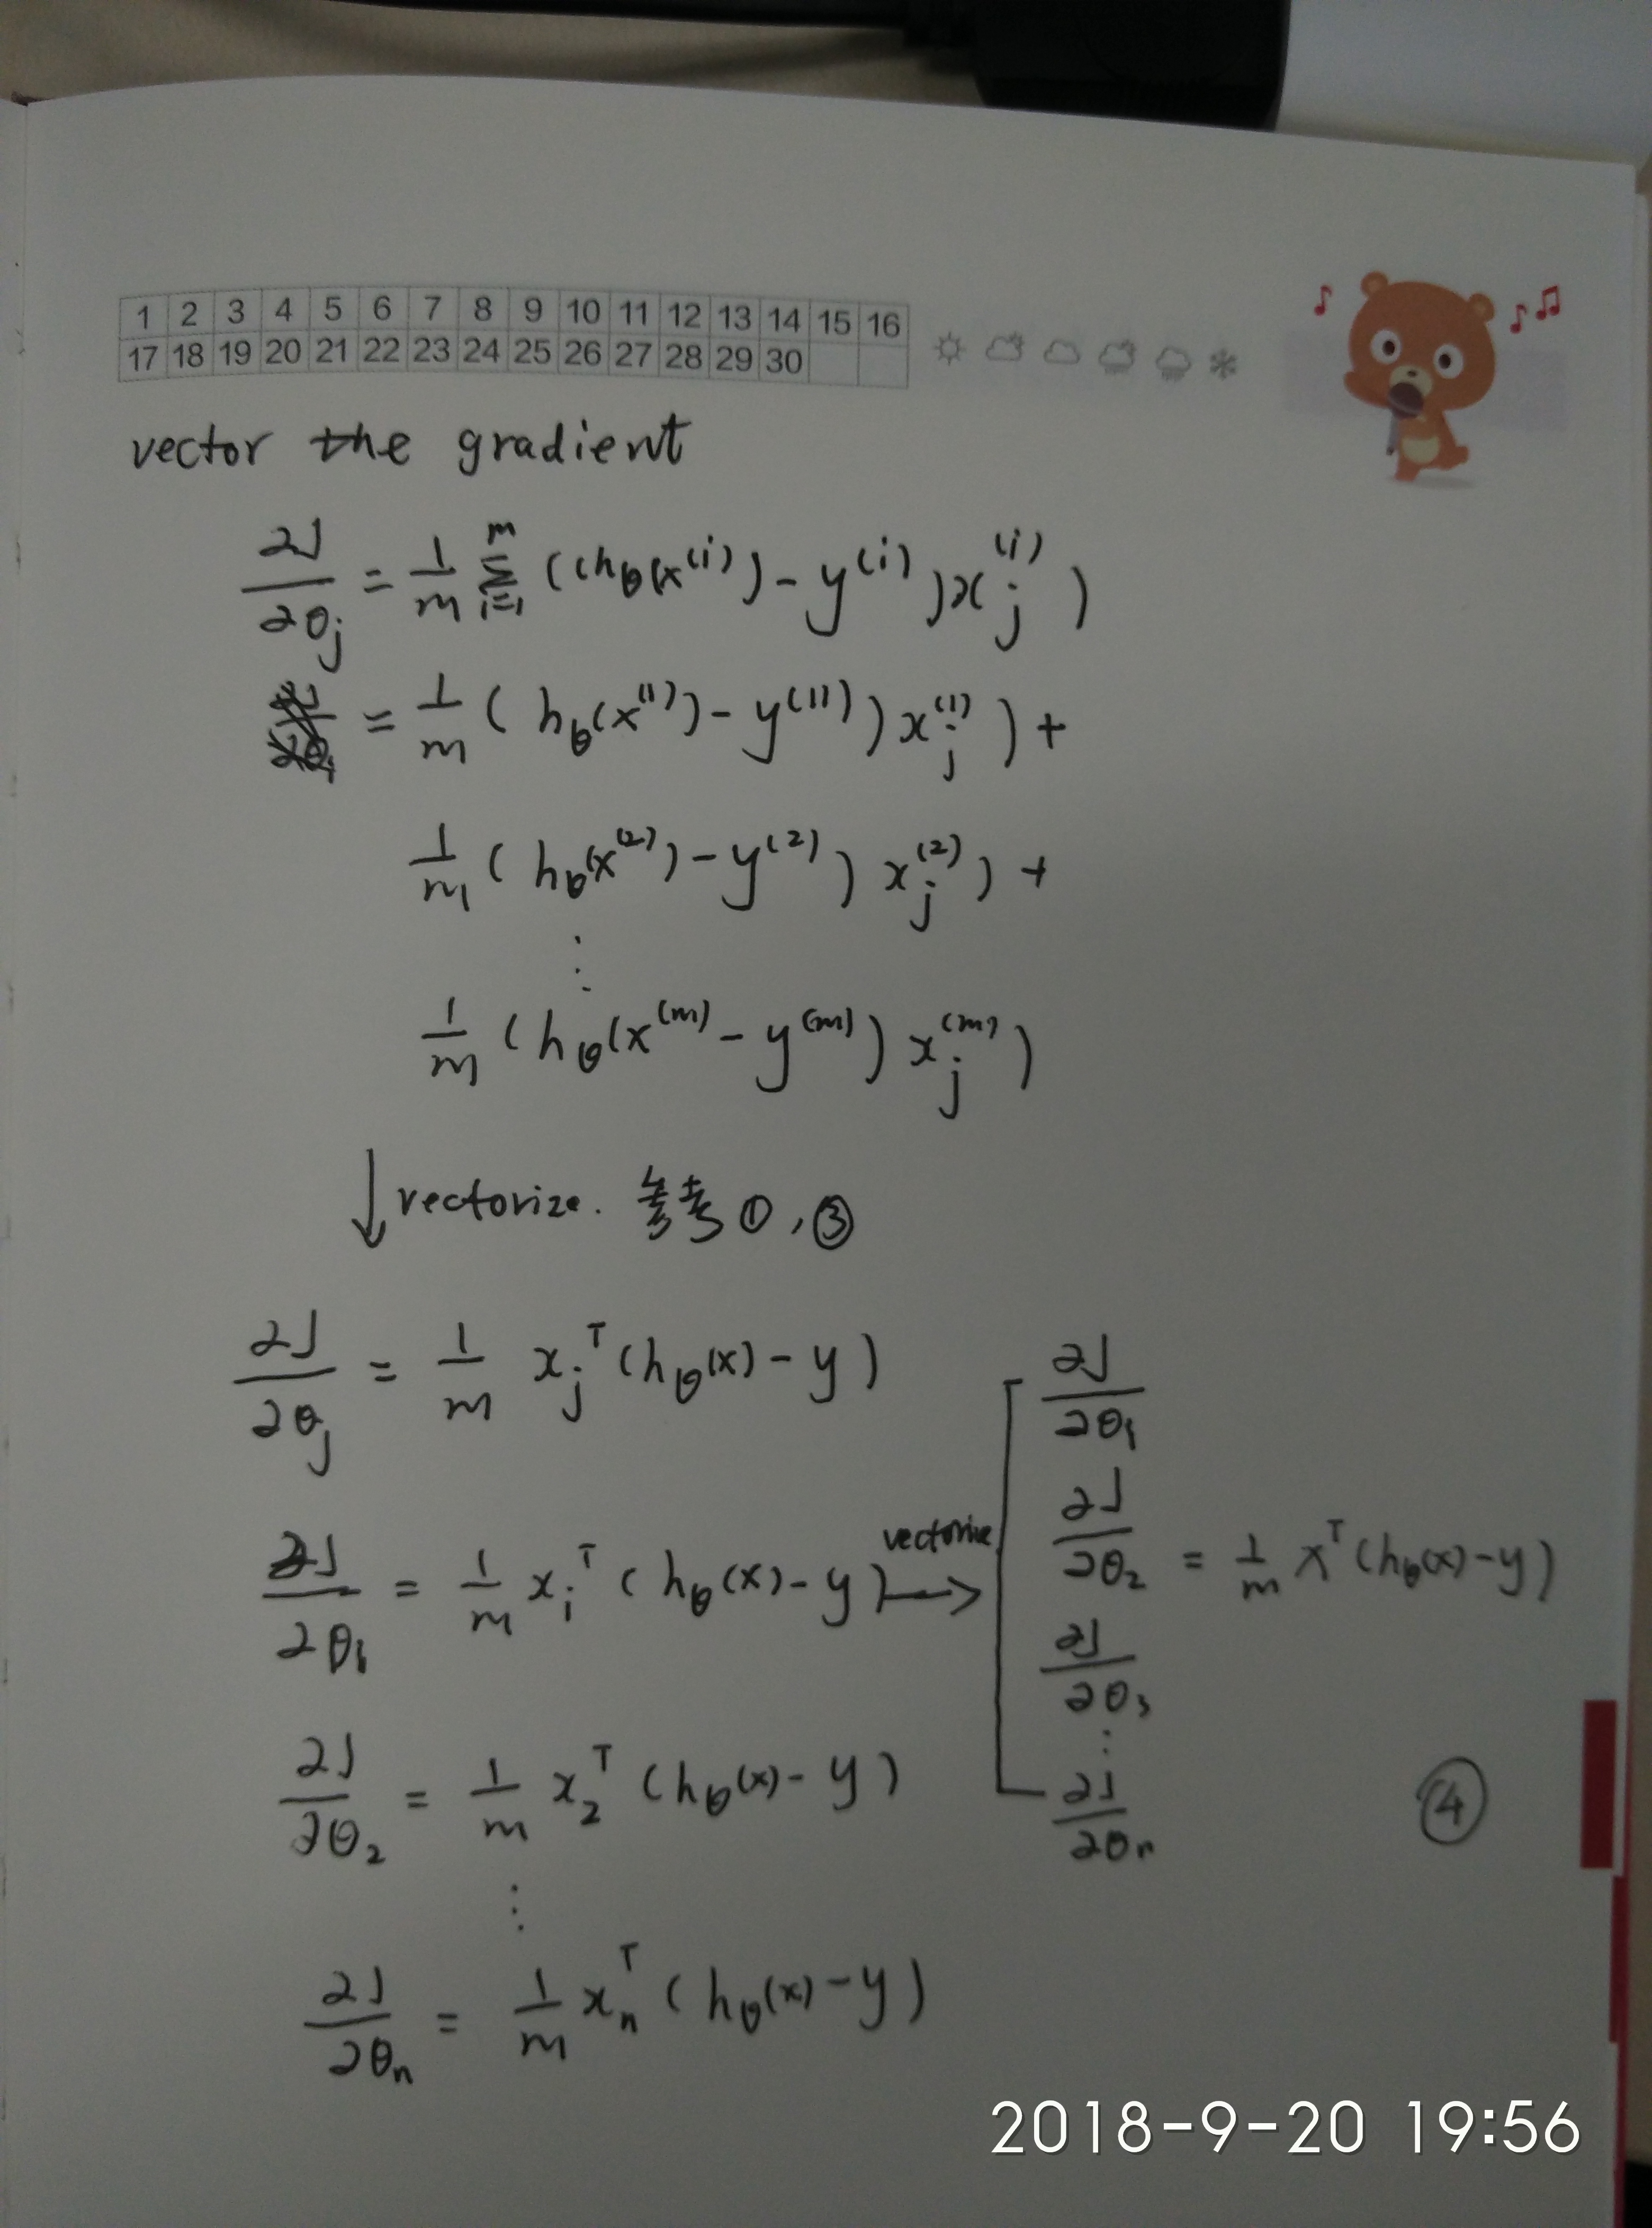 1 2 3 4 5 6 7 8 9 10 11 12 13 14 15 16
17 18 19 20 21 22 23 24 25 26 27 28 29 30
vector the gradient
∂J/∂θ_j = 1/m Σ_{i=1}^{m} ((h_θ(x^{(i)}) - y^{(i)})x_j^{(i)})
= 1/m (h_θ(x^{(1)}) - y^{(1)})x_j^{(1)}) +
1/m (h_θ(x^{(2)}) - y^{(2)}) x_j^{(2)}) +
⋮
1/m (h_θ(x^{(m)} - y^{(m)}) x_j^{(m)})
↓ vectorize. 参考 ①, ③
∂J/∂θ_j = 1/m x_j^T (h_θ(x) - y)
∂J/∂θ_1 = 1/m x_1^T (h_θ(x) - y)
vectorize →
[ ∂J/∂θ_1
∂J/∂θ_2 = 1/m X^T (h_θ(x) - y)
∂J/∂θ_3
⋮
∂J/∂θ_n
∂J/∂θ_2 = 1/m x_2^T (h_θ(x) - y)
⋮
∂J/∂θ_n = 1/m x_n^T (h_θ(x) - y)
④
2018-9-20 19:56